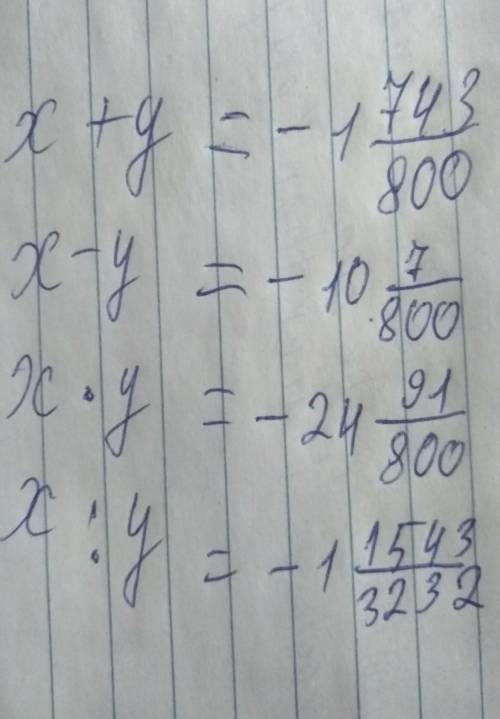 x + y = - 1 743/800
x - y = - 10 7/800
x · y = - 24 91/800
x : y = - 1 1543/3232